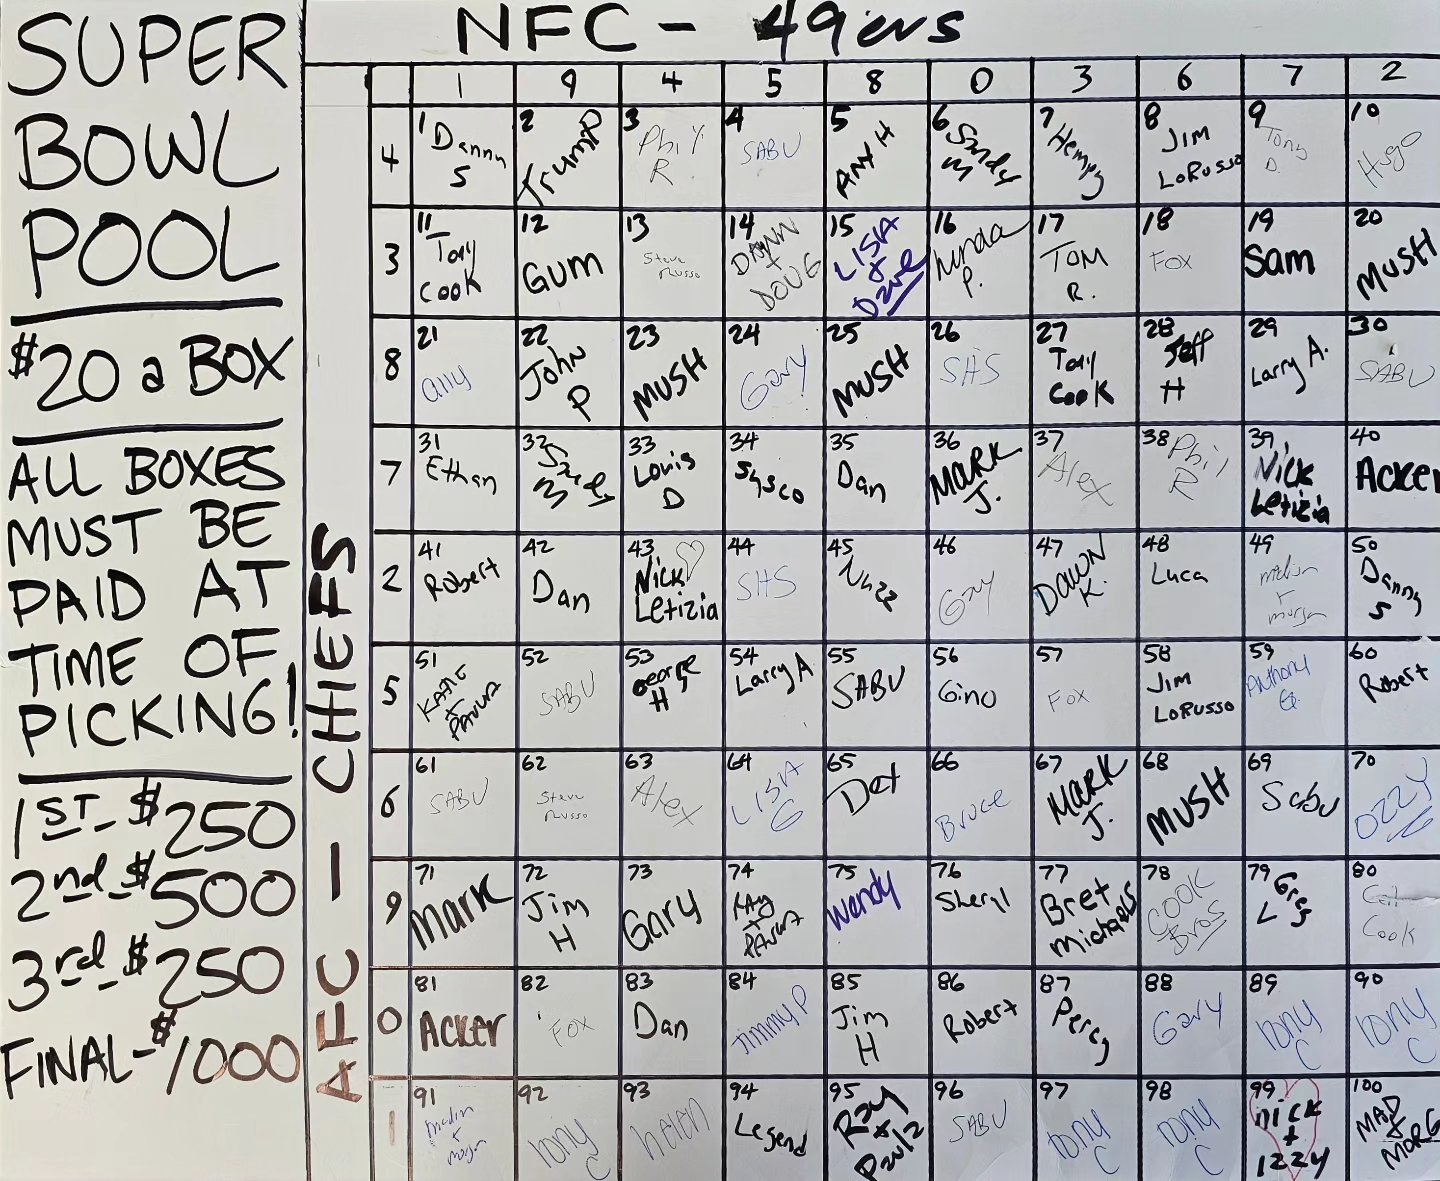 SUPER
BOWL
POOL
$20 a BOX
ALL BOXES
MUST BE
PAID AT
TIME OF
PICKING!
1ST - $250
2nd - $500
3rd - $250
FINAL - $1000
NFC - 49ers
AFC - CHIEFS
1 9 4 5 8 0 3 6 7 2
4
1 Danny S
2 Trump
3 Phil R.
4 SABU
5 AMY H
6 Sandy M
7 Hempy
8 JIM LoRusso
9 Tony D.
10 Hugo
3
11 Tony Cook
12 GUM
13 Steve Russo
14 DAWN + DOUG
15 LISA + Dave
16 Linda P.
17 TOM R.
18 FOX
19 Sam
20 MUSH
8
21 ally
22 John P
23 MUSH
24 Gary
25 MUSH
26 SHS
27 Tony Cook
28 Jeff H
29 Larry A.
30 SABU
7
31 Ethan
32
33 Louis D
34 Sysco
35 Dan
36 MARK J.
37 Alex
38 Phil R
39 Nick Letizia
40 Acker
2
41 Robert
42 Dan
43 Nick Letizia
44 SHS
45 Nuzz
46 Gary
47 DAWN K.
48 Luca
49 + morgan
50 Danny S
5
51 KATIE +
52 SABU
53 George H
54 Larry A
55 SABU
56 Gino
57 FOX
58 JIM LoRusso
59 Anthony G.
60 Robert
6
61 SABU
62 Steve Russo
63 Alex
64 LISA G
65 Det
66 Bruce
67 MARK J.
68 MUSH
69 Sabu
70 OZZY
9
71 Mark
72 Jim H
73 Gary
74 RAY +
75 Wendy
76 Sheryl
77 Bret Michaels
78 COOK BROS
79 Greg L
80 Cook
0
81 Acker
82 FOX
83 Dan
84 Jimmy P
85 Jim H
86 Robert
87 Percy
88 Gary
89 Tony C
90 Tony C
1
91 + morgan
92 Tony C
93 helen
94 Legend
95 Ray + Paula
96 SABU
97 Tony C
98 Tony C
99 Nick + Izzy
100 MAD + MORG